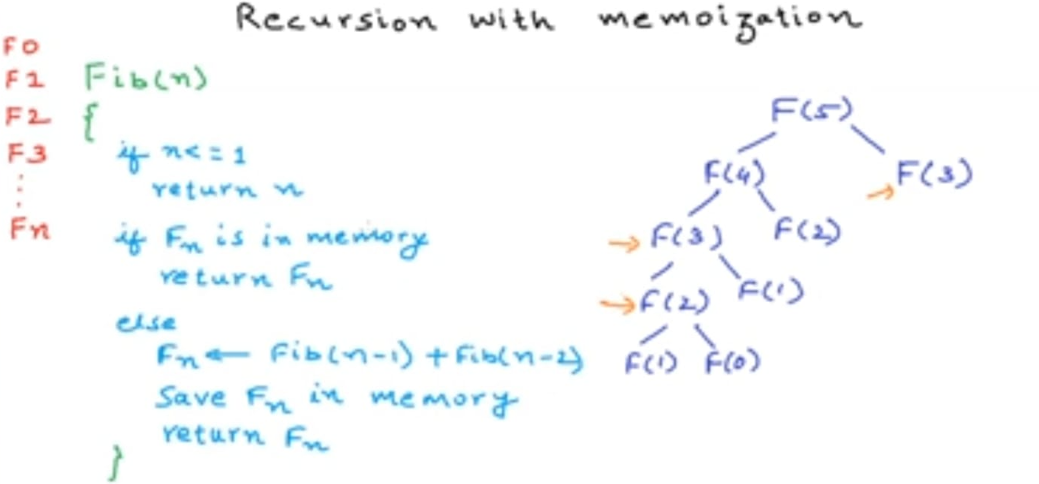 Recursion with memoization
F0
F1
F2
F3
⋮
Fn
Fib(n)
{
if n<=1
return n
if Fn is in memory
return Fn
else
Fn ← Fib(n-1) + Fib(n-2)
Save Fn in memory
return Fn
}
F(5)
F(4) F(3)
F(3) F(2)
F(2) F(1)
F(1) F(0)